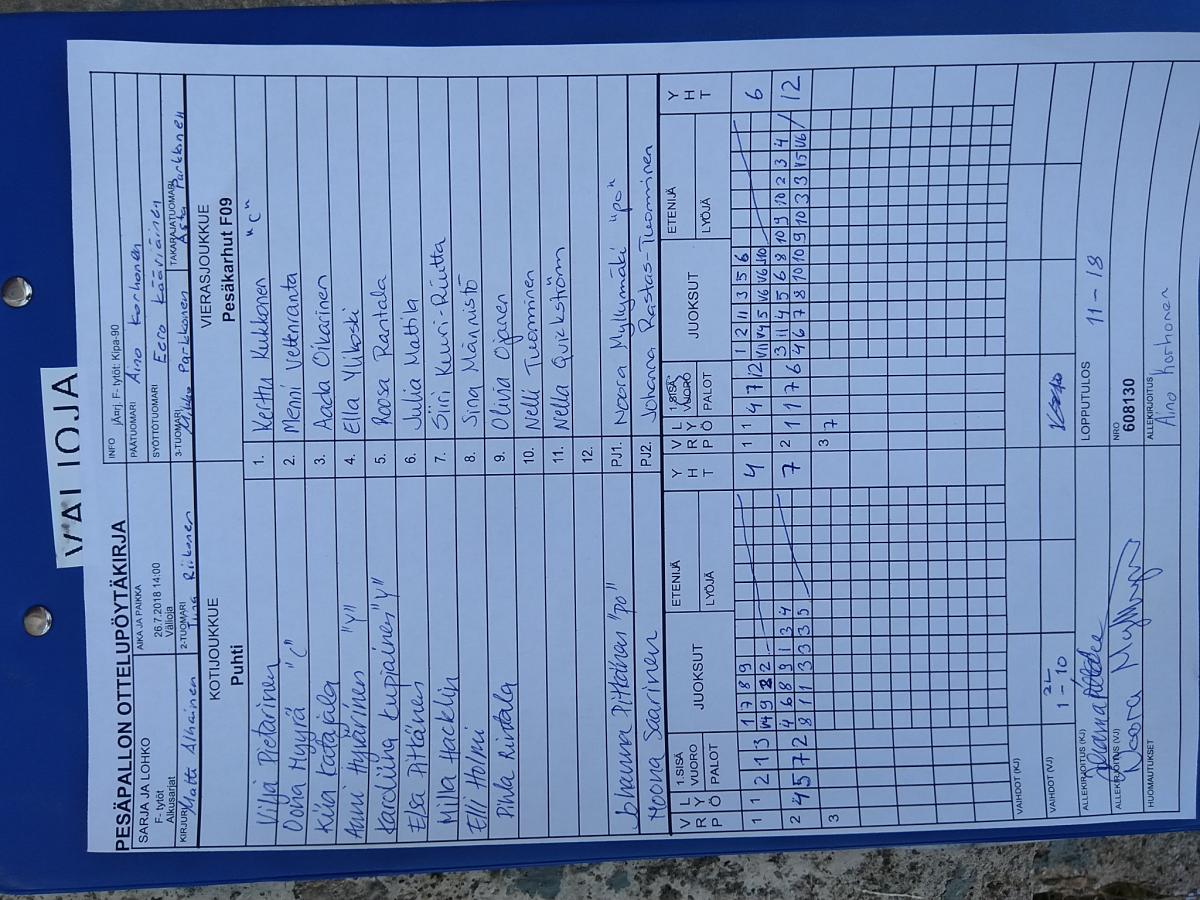 VALIOJA
PESÄPALLON OTTELUPÖYTÄKIRJA
SARJA JA LOHKO
F- tytöt
Alkusarjat
AIKA JA PAIKKA
26.7.2018 14:00
Välioja
INFO jÄrrj. F- tytöt: Kipa-90
PÄÄTUOMARI Aino Korhonen
SYÖTTÖTUOMARI Eero Kääriäinen
KIRJURI Matti Alhainen
2-TUOMARI Riikonen
3-TUOMARI Mikko Parkkonen
TAKARAJATUOMARI Asta Parkkonen
KOTIJOUKKUE
Puhti
VIERASJOUKKUE
Pesäkarhut F09
Vilja Pietarinen
Oona Myyrä "C"
Kiia Katajala
Anni Hyvärinen "Y"
Karoliina Kuopiainen "Y"
Elsa Pitkänen
Milla Hacklin
Elli Holmi
Pihla Ristola
1. Kerttu Kukkonen "C"
2. Menni Vettenranta
3. Aada Oikarinen
4. Ella Ylikoski
5. Roosa Rantala
6. Julia Mattila
7. Siiri Kuuri-Riutta
8. Sina Männistö
9. Olivia Ojanen
10. Nelli Tuominen
11. Nella Quickström
12.
Johanna Pitkänen "po"
PJ1. Noora Myllymäki "po"
Moona Saarinen
PJ2. Johanna Rastas-Tuominen
V R P
L Y Ö
1.SISÄ VUORO
PALOT
JUOKSUT
ETENIJÄ
LYÖJÄ
Y H T
V R P
L Y Ö
1.SISÄ VUORO
PALOT
JUOKSUT
ETENIJÄ
LYÖJÄ
Y H T
1 1 2 1 3 1 7 8 9 4
V4 9 2 2
1 1 4 7 12 1 2 11 3 5 6 6
V11 V4 5 V6 V6 V10
2 4 5 7 2 4 6 8 9 1 3 4 7
8 1 1 3 3 3 5
2 1 1 7 6 3 11 4 5 6 8 10 9 10 2 3 4 12
4 6 7 8 10 10 9 10 3 3 V5 V6
3
3 7
VAIHDOT (KJ)
VAIHDOT (VJ)
2L
1 - 10
ALLEKIRJOITUS (KJ)
LOPPUTULOS 11 - 18
ALLEKIRJOITUS (VJ) Noora Myllymäki
NRO
608130
HUOMAUTUKSET
ALLEKIRJOITUS
Aino Korhonen